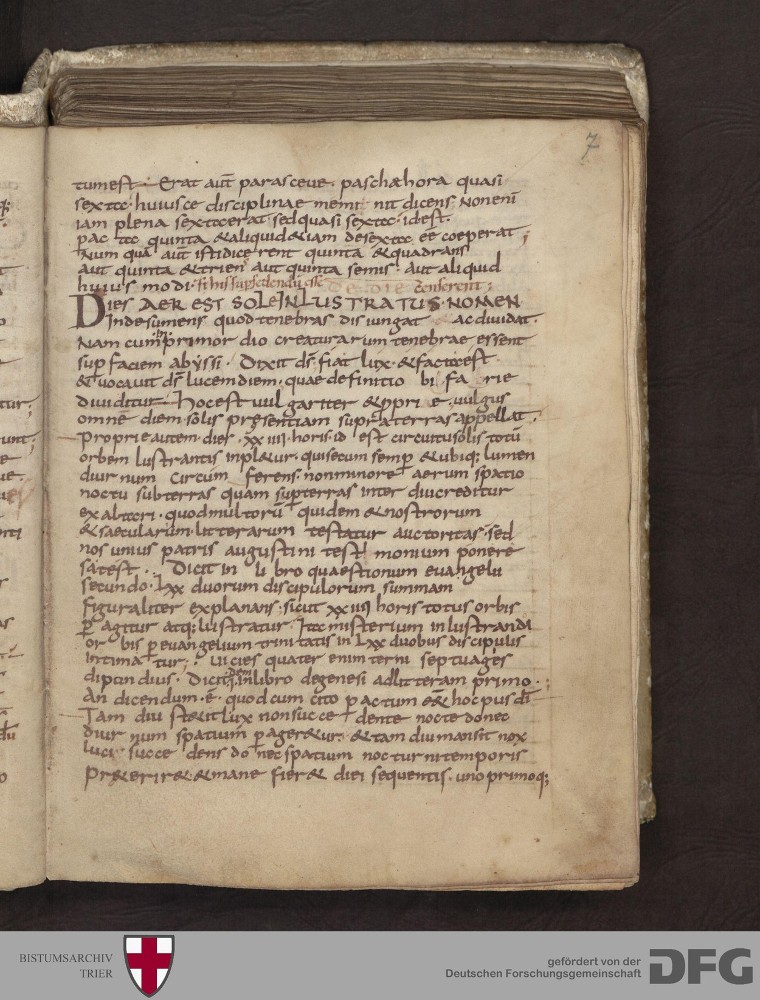 7
tum est. Erat aut̄ parasceve. paschæ hora quasi
sexta. huiusce disciplinae memi nit dicens. Non enī
iam plena sexta erat. sed quasi sexta. id est.
quinta & aliquid & iam de sexta ēē coeperat;
Num quā aut̄ isti dicerent quinta & quadrans
aut quinta & trien̄ aut quinta semis. aut aliquid
huius modi.
DIES AER EST SOLE INLUSTRATUS. NOMEN
Inde sumens quod tenebras disiungat ac dividat.
Nam cum primor dio creaturarum tenebrae essent
sup faciem abyssi. Dixit d̄s fiat lux. & facta est
& vocavit d̄s lucem diem. quae definitio bi fa rie
dividitur. Hoc est vul gariter & ꝓpri e. vulgus
omnē diem solis presentiam supra terras appellat.
Proprie autem dies .xxiiii. horis. id est circuitu solis totū
orbem lustrantis inpl&ur. qui secum semꝑ & ubiq; lumen
diurnum circum ferens. non minore aerum spatio
noctu sub terras quam sup terras inter diu creditur
exaltari. quod multorū quidem & nostrorum
& saecularium litterarum testatur auctoritas. sed
nos unius patris augustini testi monium ponere
sat est. Dicit in li bro quaestionum euangelii
secundo. Lxx duorum discipulorum summam
figuraliter explanans. sicut xxiiii horis totus orbis
ꝑ agitur atq; lustratur. Ita misterium inlustrandi
or bis ꝑ evangelium trinitatis in Lxx duobus discipulis
intima tur; Vicies quater enim terni septuages
dipin duus. Dicit in libro de genesi ad litteram primo.
An dicendum. ē. quod cum cito pactum ess& hoc opus dī
Tam diu st&it lux non succe dente nocte donec
diur num spatium ꝑager&ur. & tam diu mansit nox
luci succe dens do nec spatium nocturni temporis
pr&erir&. & mane fier& diei sequentis. uno primoq;
BISTUMSARCHIV
TRIER
gefördert von der
Deutschen Forschungsgemeinschaft
DFG